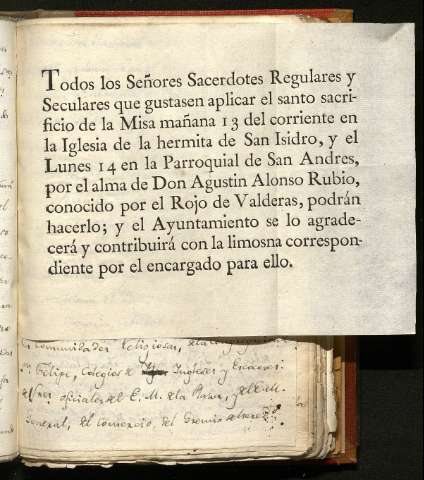 Todos los Señores Sacerdotes Regulares y
Seculares que gustasen aplicar el santo sacri-
ficio de la Misa mañana 13 del corriente en
la Iglesia de la hermita de San Isidro, y el
Lunes 14 en la Parroquial de San Andres,
por el alma de Don Agustin Alonso Rubio,
conocido por el Rojo de Valderas, podrán
hacerlo; y el Ayuntamiento se lo agrade-
cerá y contribuirá con la limosna correspon-
diente por el encargado para ello.
comunidades religiosas,
Felipe, Colegios de Ingleses y Escoceses
oficiales del E. M. de la Plaza,
General, del Comercio, del Gremio